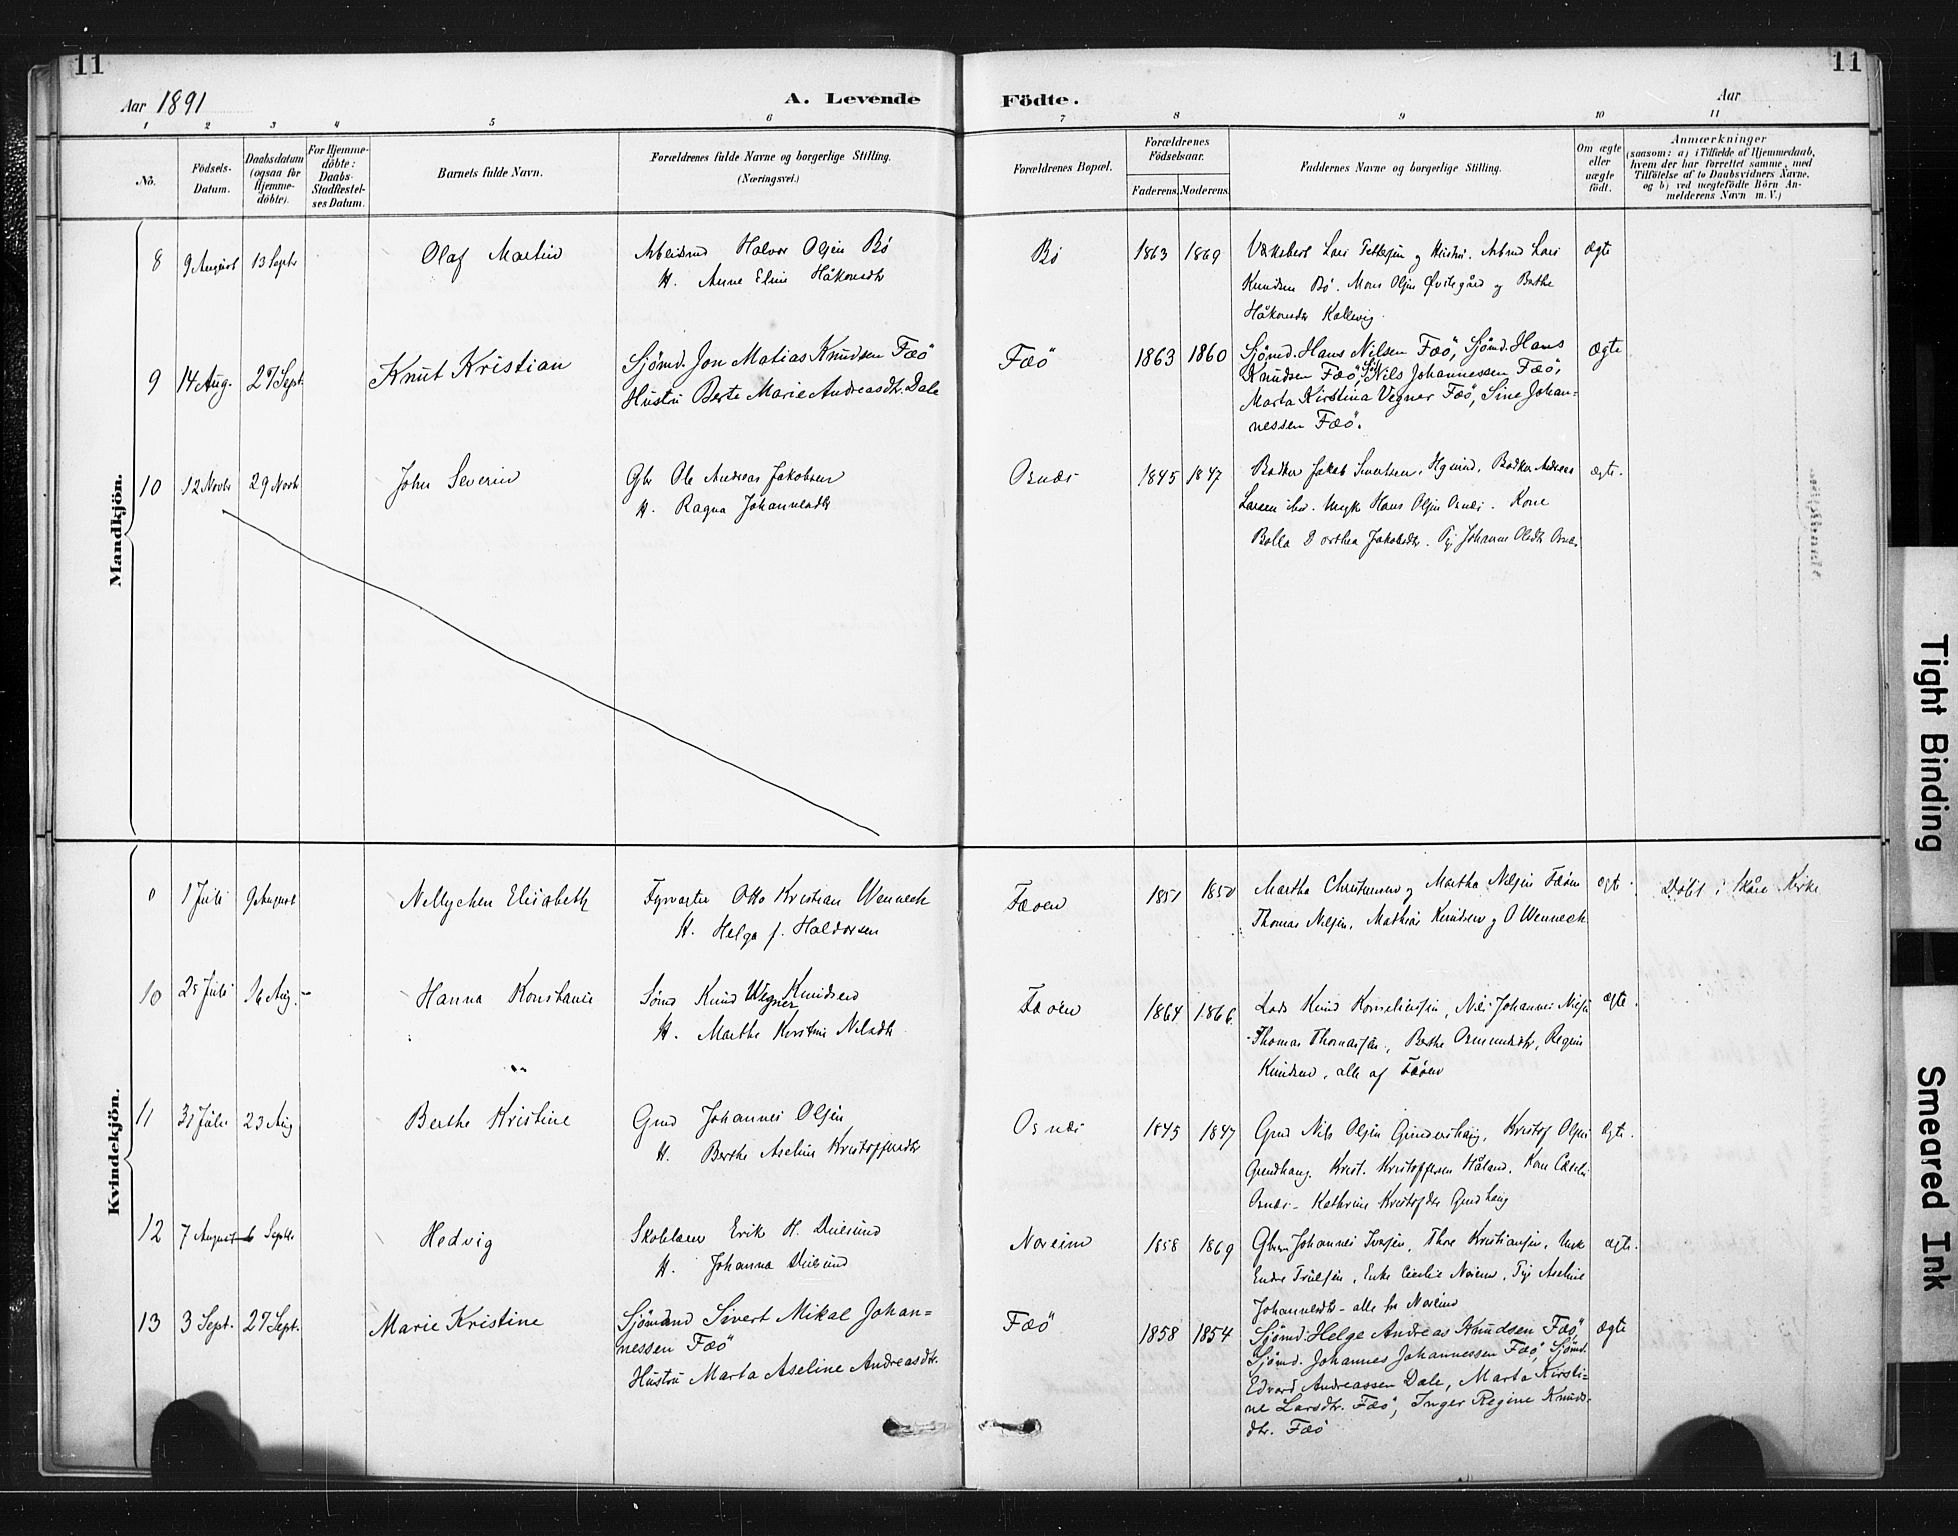 11
11
Aar 1891
A. Levende
Födte.
Aar
1 2 3 4 5 6 7 8 9 10 11
No.
Födsels-
Datum.
Daabsdatum
(ogsaa for
Hjemme-
döbte).
For Hjemme-
döbte:
Daabs-
Stadfæstel-
ses Datum.
Barnets fulde Navn.
Forældrenes fulde Navne og borgerlige Stilling.
(Næringsvei.)
Forældrenes Bopæl.
Forældrenes
Födselsaar.
Faderens. Moderens.
Faddernes Navne og borgerlige Stilling.
Om ægte
eller
uægte
født.
Anmærkninger
(saasom: a) i Tilfælde af Hjemmedaab,
hvem der har forrettet samme, med
Tilföielse af to Daabsvidners Navne,
og b) ved uægtefödte Börn An-
melderens Navn m. V.)
Mandkjön.
8 9 August 13 Septr Olaf Martin
Arbeidsmd Halvor Olsen Bö
H. Anne Eline Håkonsdtr
Bö 1863 1869
Lars
Knudsen Bö. Mons Olsen og Berthe
Håkonsdtr Kallevig
ægte
9 14 Aug. 27 Sept. Knut Kristian
Sjömd. Jon Matias Knudsen Fæö
Hustru Berte Marie Andreasdtr. Dale
Fæö 1863 1860
Sjömd. Hans Nilsen Fæö, Sjömd. Hans
Knudsen Fæö, Nils Johannessen Fæö,
Marta Kirstina Vegner Fæö, Sine Johan=
nessen Fæö.
ægte
10 12 Novbr 29 Novbr John Severin
Gbr Ole Andreas Jakobsen
H. Ragna Johannesdtr
Osnæs 1845 1847
Jakob Sivertsen, Andreas
Larsen Hans Olsen Osnæs. Kone
Bolla Dorthea Jakobsdtr. Johanne Olsdtr Osnæs
ægte.
Kvindekjön.
1 Juli 9 August Nellychen Elisabeth
Fyrvogter Otto Kristian Wenneck
H. Helga f. Haldorsen
Fæöen 1851 1850
Martha Christensen og Martha Nilsen Fæöen
Thomas Nilsen, Mathias Knudsen og O Wenneck
ægte.
Döbt i Skåre Kirke
10 25 Juli 16 Aug. Hanna Konstanse
Sömd Knud Wegner Knudsen
H. Marthe Kirstine Nilsdtr
Fæöen 1864 1866.
Lods Knud Korneliussen, Nils Johannes Nilsen
Thomas Thomassen, Berthe Osmundsdtr, Regine
Knudsen, alle af Fæöen
ægte.
11 31 Juli 23 Aug Berthe Kristine
Gmd Johannes Olsen
H. Berthe Aseline Kristoffersdtr
Osnæs 1845 1847
Gmd Nils Olsen Kristof Olsen
Krist. Kristoffersen Håland. Kone
Osnæs - Kathrine Kristofdtr
Ægte.
12 7 August 6 Septbr Hedvig
Skolelærer Erik H. Duesund
H. Johanna Duesund
Noreim 1858 1869
Johannes Iversen, Thore Kristiansen,
Endre Trulsen, Enke Cecilie Noreim, Aseline
Johannesdtr - alle fra Noreim
ægte.
13 3 Sept. 27 Sept. Marie Kristine
Sjömand Sivert Mikal Johan=
nessen Fæö
Hustru Marta Aseline Andreasdtr.
Fæö 1858 1854
Sjömd. Helge Andreas Knudsen Fæö,
Sjömd. Johannes Johannessen Fæö, Sjömd.
Edvard Andreassen Dale, Marta Kirsti=
ne Larsdtr. Fæö, Inger Regine Knuds=
dtr. Fæö
ægte
Tight Binding
Smeared Ink